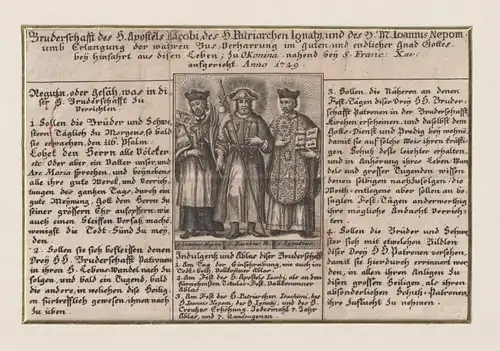 Bruderschafft des H. Apostels Jacobi, des H. Patriarchen Ignatÿ, und des H. M. Joannis Nepom.
umb Erlangung der wahren Bus, Verharrung im guten, und endlicher Gnad Gottes
beÿ hinfahrt aus disen Leben; zu Okonina nahend beÿ S. Franc: Xav:
aufgericht Anno 1729.
Reguln, oder gesäh, was in di
ser H. Bruderschafft zu
Verrichten
1. Sollen die Brüder und Schwe
stern Täglich zu Morgens, so bald
sie erwachen, den 116. Psalm
Lobet den Herrn alle Völcker
etc. Oder aber ein Vatter unser, und
Ave Maria sprechen, und beÿnebens
alle ihre gute Werck, und Verrich,
tungen des ganhen Tags, durch ein
gute Meÿnung, Gott dem Herrn zu
seiner grössern Ehr aufopfern, wie
auch einen steiffen Vorsah machen,
wenigst die Todt-Sünd zu meÿ,
den.
2. Sollen sie sich befleissen denen
Dreÿ HH. Bruderschafft Patronen
in ihren H. Lebens Wandel nach zu
folgen, und bald ein Tugend, bald
die andere, in welchen dise Heilig
en fürtrefflich gewesen, ihnen nach
zu üben.
S. Ioannes Nepom. S. Iacobus M. S. Ignatius.
Indulgenz und Ablas diser Bruderschafft
1. Am Tag der Einschreibung, wie auch im
Todt-beth Vollkomner Ablas.
2. Am Fest des H. Apostels Iacobi, als an dem
fürnehmsten Titular-Fest, Vollkommner
Ablas.
3. Am Fest des H. Patriarchen Ioachimi, des
H. Ioannis Nepom, des H. Ignatÿ, und des H.
Creuhes Erhöhung. Jedesmahl 7. Jahr
Ablas, und 7. Quadragenen.
3. Sollen die Näheren an denen
Fest-Tägen diser Dreÿ HH. Bruder,
schafft Patronen in der Bruderschafft
Kirchen erscheinen, und daselbst dem
Gotts-Dienst und Predig beÿ wohnē,
damit sie auf solche Weis ihren kräffti,
gen Schuh desto leichter erhalten,
und in Anhörung ihres Leben Wan
dels und grosser Tugenden wissen
denen selbigen nachzufolgen; die
Weith-entlegne aber sollen an be,
sagten Fest-Tägen anderwerthig
ihre mögliche Andacht verrich
ten.
4. Sollen die Brüder und Schwe
ster sich mit etwelchen Bildlen
diser Dreÿ HH. Patronen versehen,
damit sie hierdurch erinnert wer
den, in allen ihren Anligen zu
disen grossen Heiligen, als ihren
absonderlichen Schuh-Patronen
ihre Zuflucht zu nehmen.